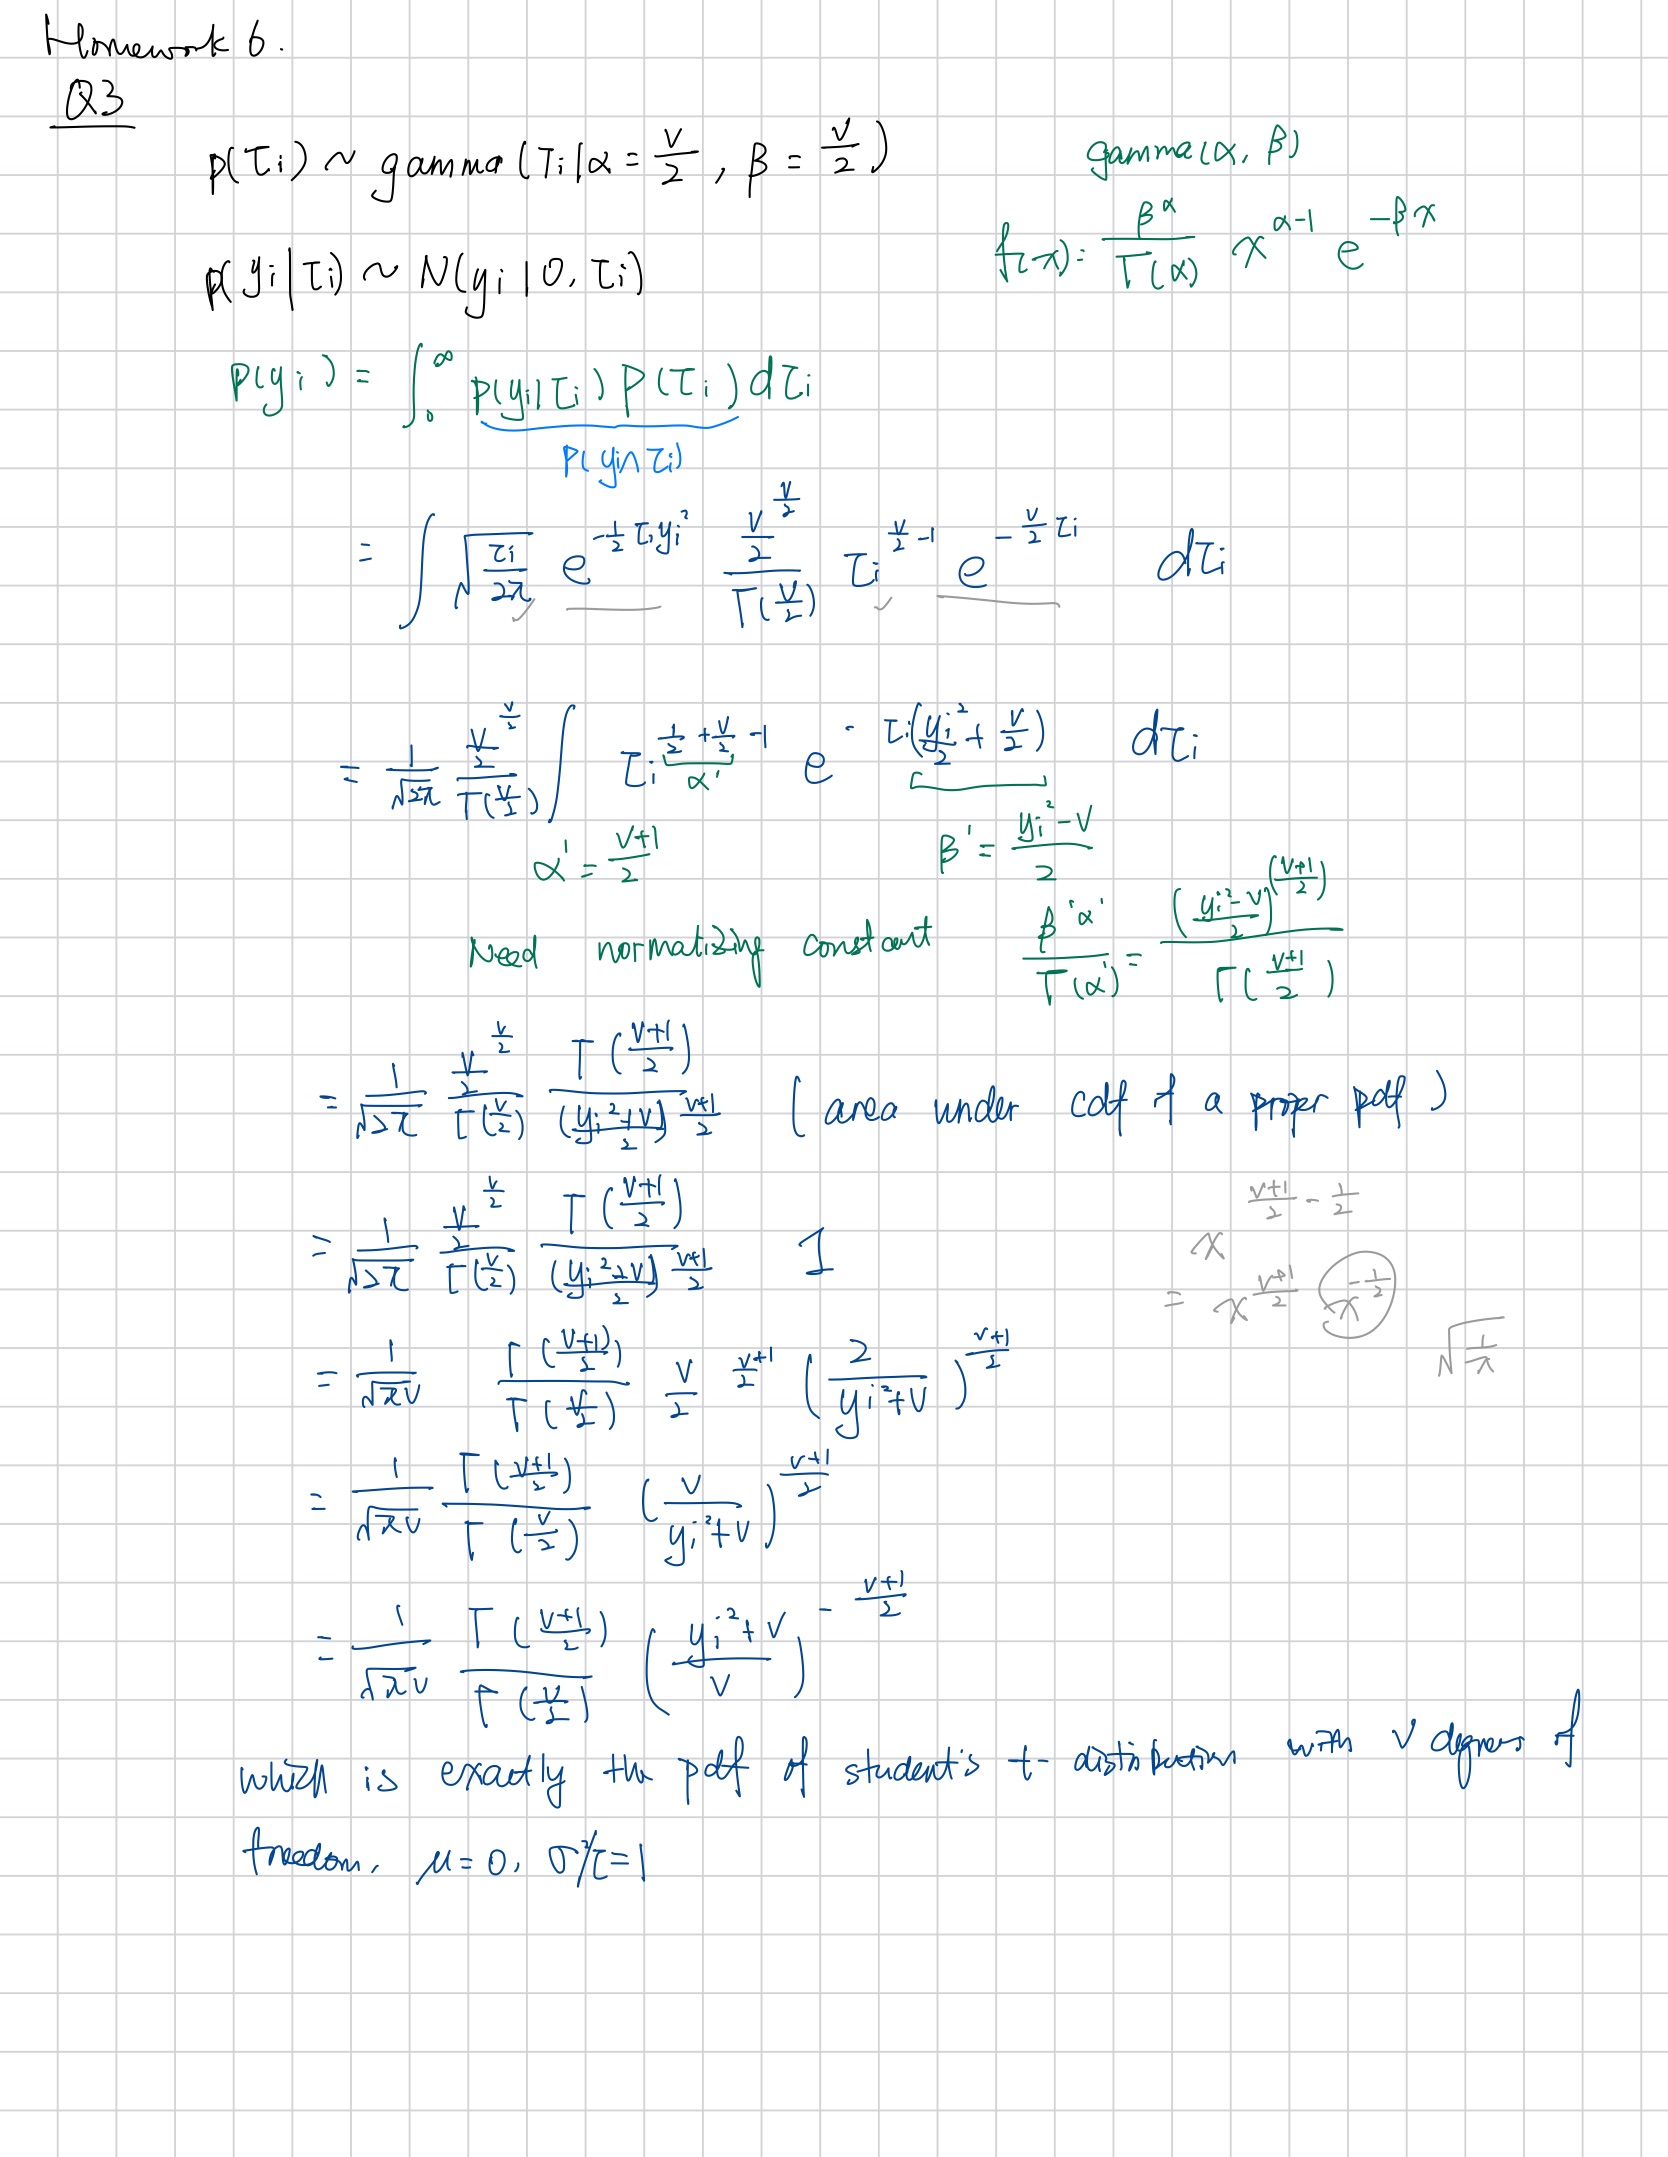 Homework 6.
Q3
p(τi) ~ gamma(τi | α = v/2, β = v/2)
gamma(α, β)
f(x): β^α / Γ(α) x^(α-1) e^(-βx)
p(yi|τi) ~ N(yi | 0, τi)
P(yi) = ∫_0^∞ p(yi|τi) P(τi) dτi
P(yi∩τi)
= ∫ √(τi/2π) e^(-1/2 τi yi²) (v/2)^(v/2) / Γ(v/2) τi^(v/2 -1) e^(-v/2 τi) dτi
= 1/√2π (v/2)^(v/2) / Γ(v/2) ∫ τi^(1/2 + v/2 -1) e^(-τi(yi²/2 + v/2)) dτi
α'
α' = (v+1)/2 β' = (yi²-v)/2
Need normalizing constant β'^α' / Γ(α') = ((yi²-v)/2)^((v+1)/2) / Γ((v+1)/2)
= 1/√2π (v/2)^(v/2) / Γ(v/2) Γ((v+1)/2) / ((yi²+v)/2)^((v+1)/2) (area under cdf of a proper pdf)
= 1/√2π (v/2)^(v/2) / Γ(v/2) Γ((v+1)/2) / ((yi²+v)/2)^((v+1)/2) 1
x^((v+1)/2 - 1/2)
= x^((v+1)/2) x^(-1/2)
√(1/x)
= 1/√πv Γ((v+1)/2) / Γ(v/2) v/2^((v+1)/2) (2/(yi²+v))^((v+1)/2)
= 1/√πv Γ((v+1)/2) / Γ(v/2) (v/(yi²+v))^((v+1)/2)
= 1/√πv Γ((v+1)/2) / Γ(v/2) ((yi²+v)/v)^(-(v+1)/2)
which is exactly the pdf of student's t-distribution with v degrees of
freedom, μ=0, σ²/τ=1